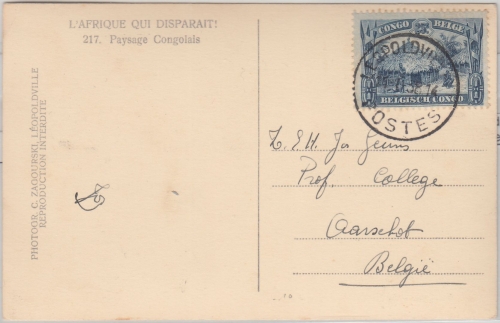 L'AFRIQUE QUI DISPARAIT!
217. Paysage Congolais
PHOTOGR. C. ZAGOURSKI, LÉOPOLDVILLE
REPRODUCTION INTERDITE
CONGO BELGE
BELGISCH CONGO
LEOPOLDVILLE
POSTES
Z. E. H. Jos
Prof. College
Aarschot
België